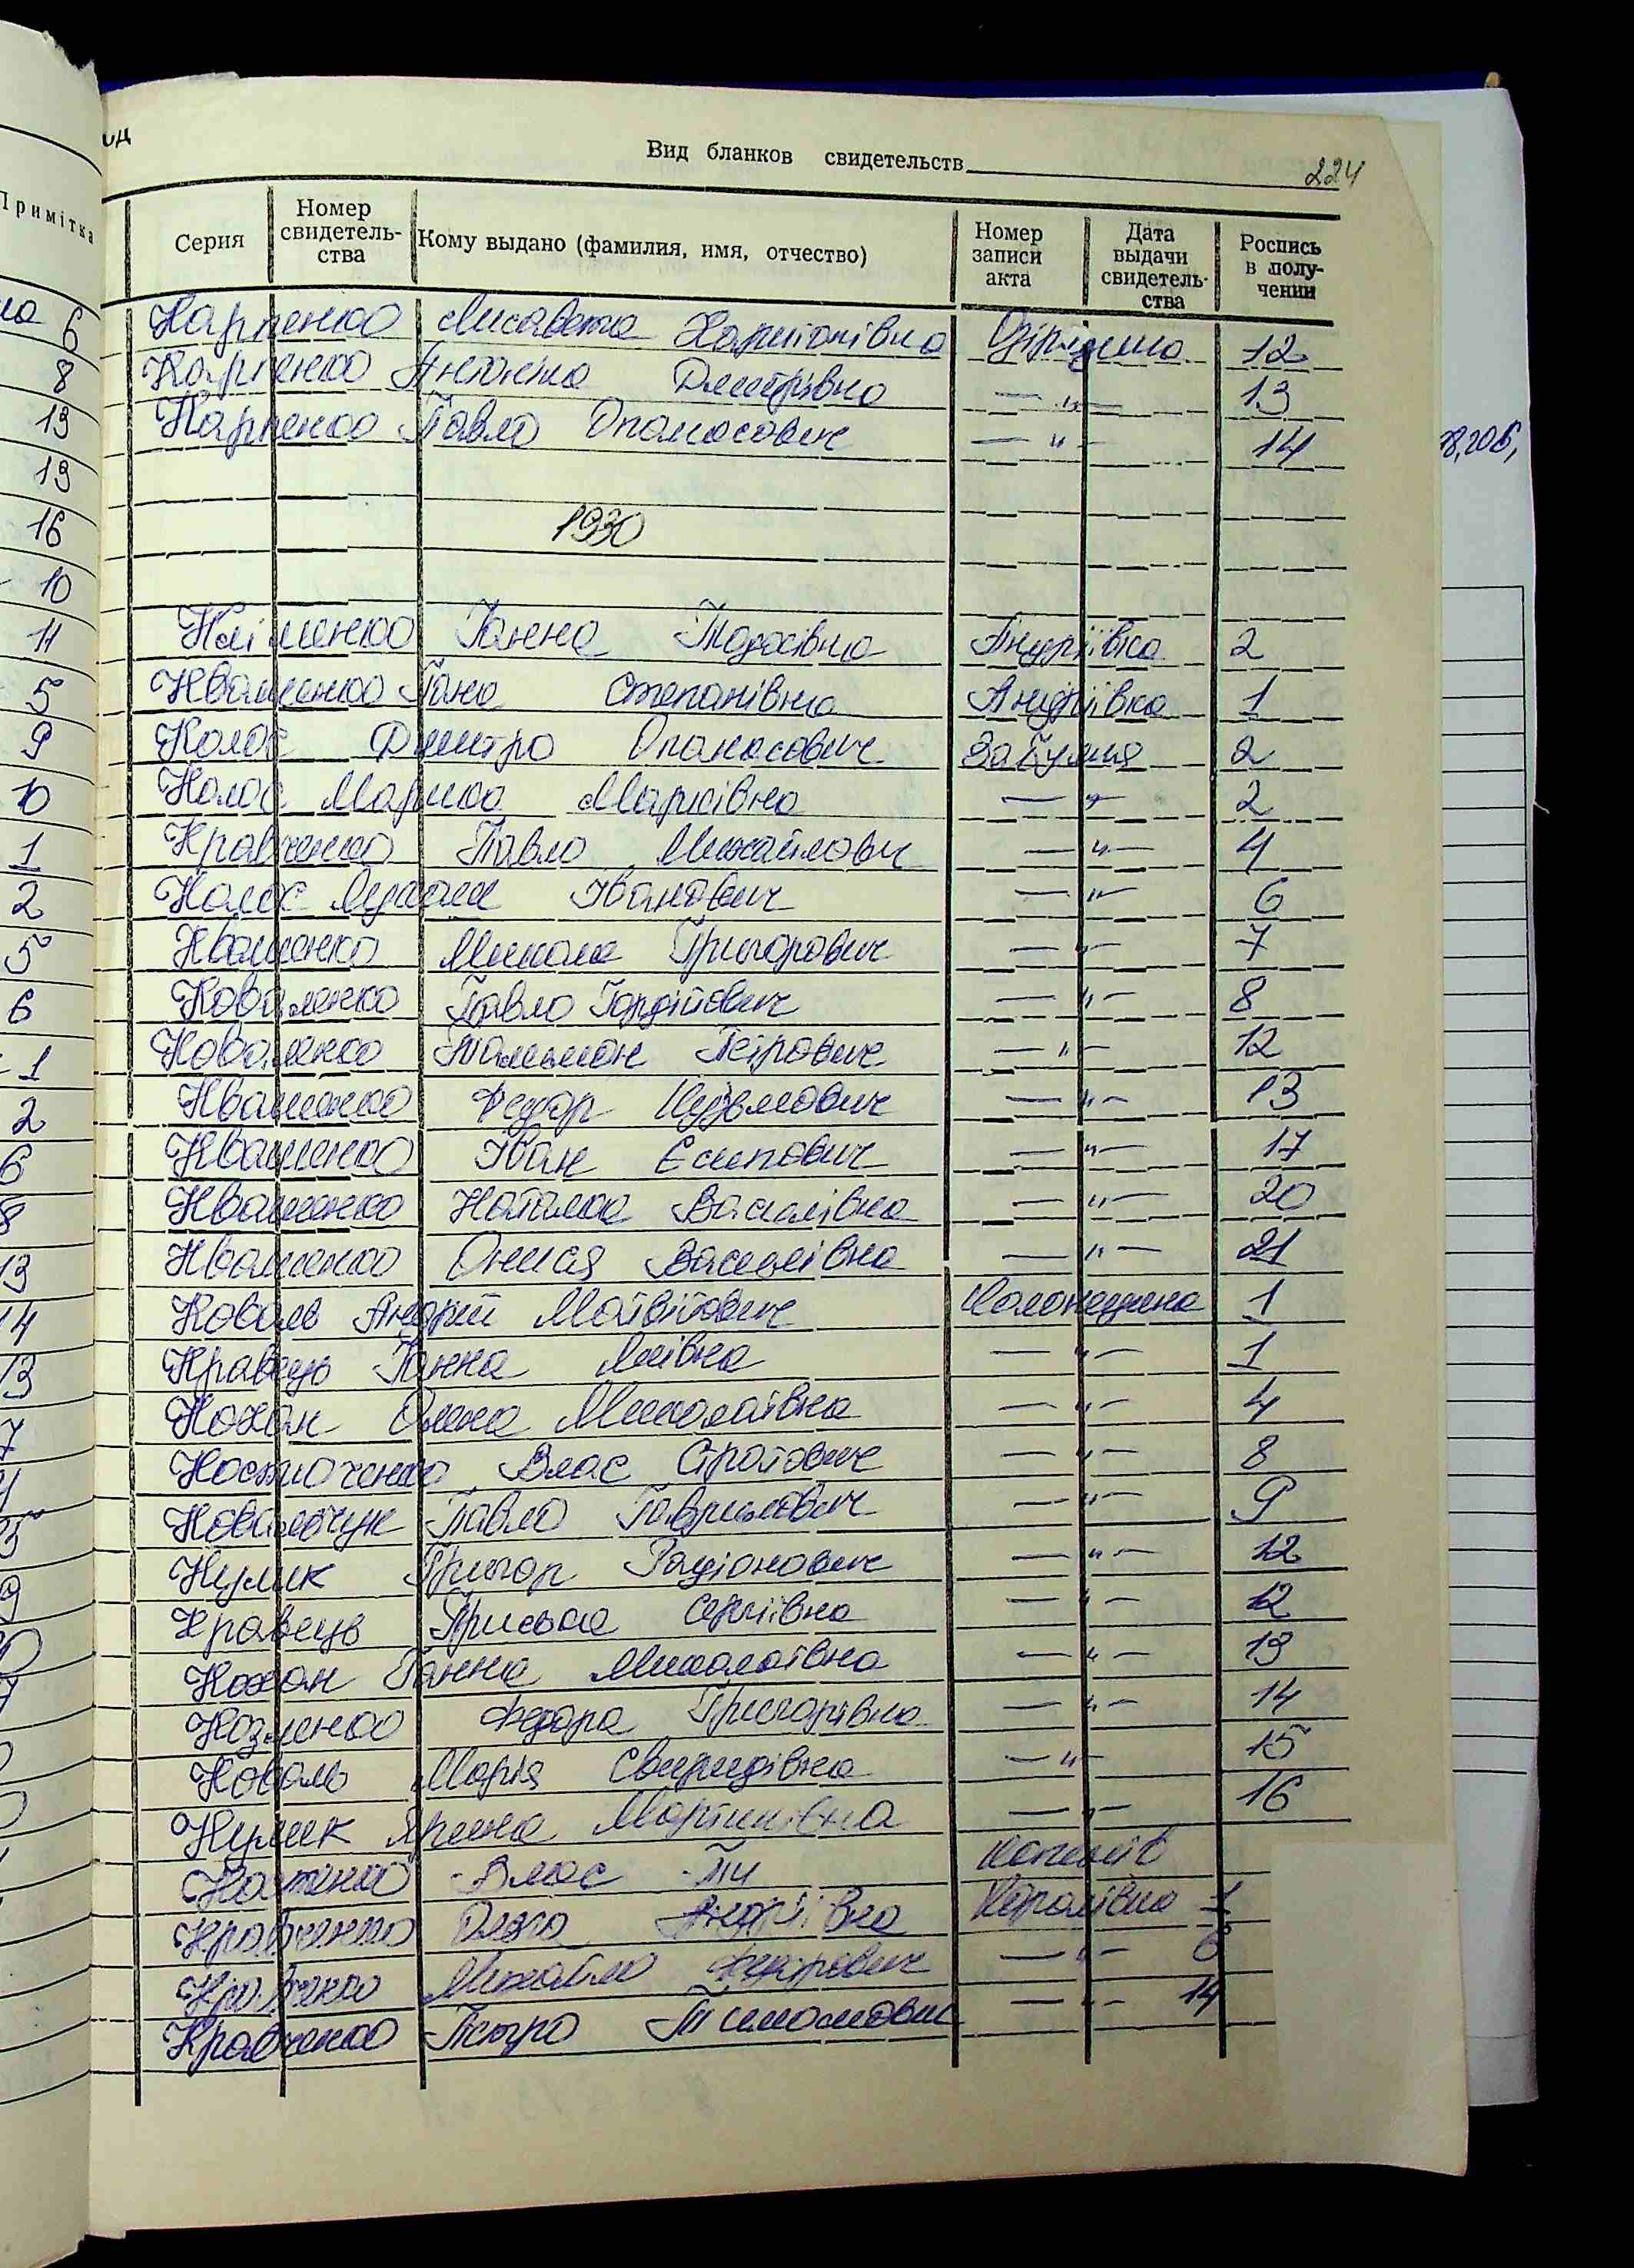 Вид бланков свидетельств 224
Серия Номер свидетель-ства Кому выдано (фамилия, имя, отчество) Номер записи акта Дата выдачи свидетель-ства Роспись в полу-чении
Примітка
Карпенко Лисавета Харитонівна 12
Карпенко Дмитрівна — " — 13
Карпенко Павло Опанасович — " — 14
1930
Кліменко Ганна Тарасівна Андріївка 2
Квашенко Гана Степанівна Андріївка 1
Колос Дмитро Опанасович Забуяня 2
Колос Марика Марківна — " — 2
Кравченко Павло Михайлович — " — 4
Колос Іванович — " — 6
Квашенко Микола Григорович — " — 7
Коваленко Павло Гордійович — " — 8
Коваленко Петрович — " — 12
Квашенко Федор Кузьмович — " — 13
Квашенко Іван Єсипович — " — 17
Квашенко Наталка Василівна — " — 20
Квашенко Онися Василівна — " — 21
Коваль Андрій Матвійович Колонщина 1
Кравець Ганна — " — 1
Кохан Олена Миколаївна — " — 4
Костюченко Влас — " — 8
Ковальчук Павло Гаврилович — " — 9
Кулик Григор Радіонович — " — 12
Кравець Приська Сергіївна — " — 12
Кохан Ганна Миколаївна — " — 13
Козленко Федора Григорівна — " — 14
Коваль Марія Свиридівна — " — 15
Кулик Ярина Мартинівна — " — 16
Влас Копилів
Кравченко Ольга Андріївна Королівка 1
Кравченко Михайло Федорович — " — 6
Кравченко Петро — " — 14
6
8
13
13
16
10
11
5
9
10
1
2
5
6
1
2
6
8
13
14
13